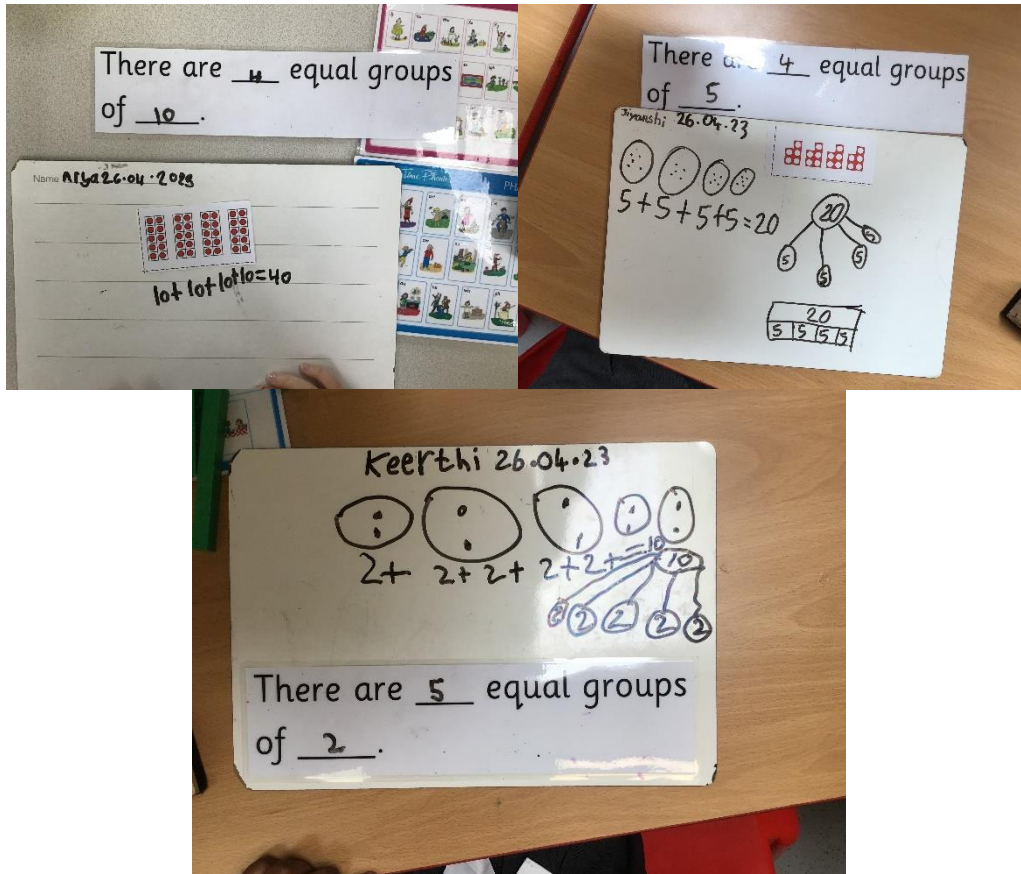 There are 4 equal groups
of 10.
Name Arya 26.04.2023
10+10+10+10=40
There are 4 equal groups
of 5.
Jiyanshi 26.04.23
5+5+5+5=20
20
5
5
5
5
20
5 5 5 5
Keerthi 26.04.23
2+ 2+2+ 2+2+=10
10
2 2 2 2 2
There are 5 equal groups
of 2.